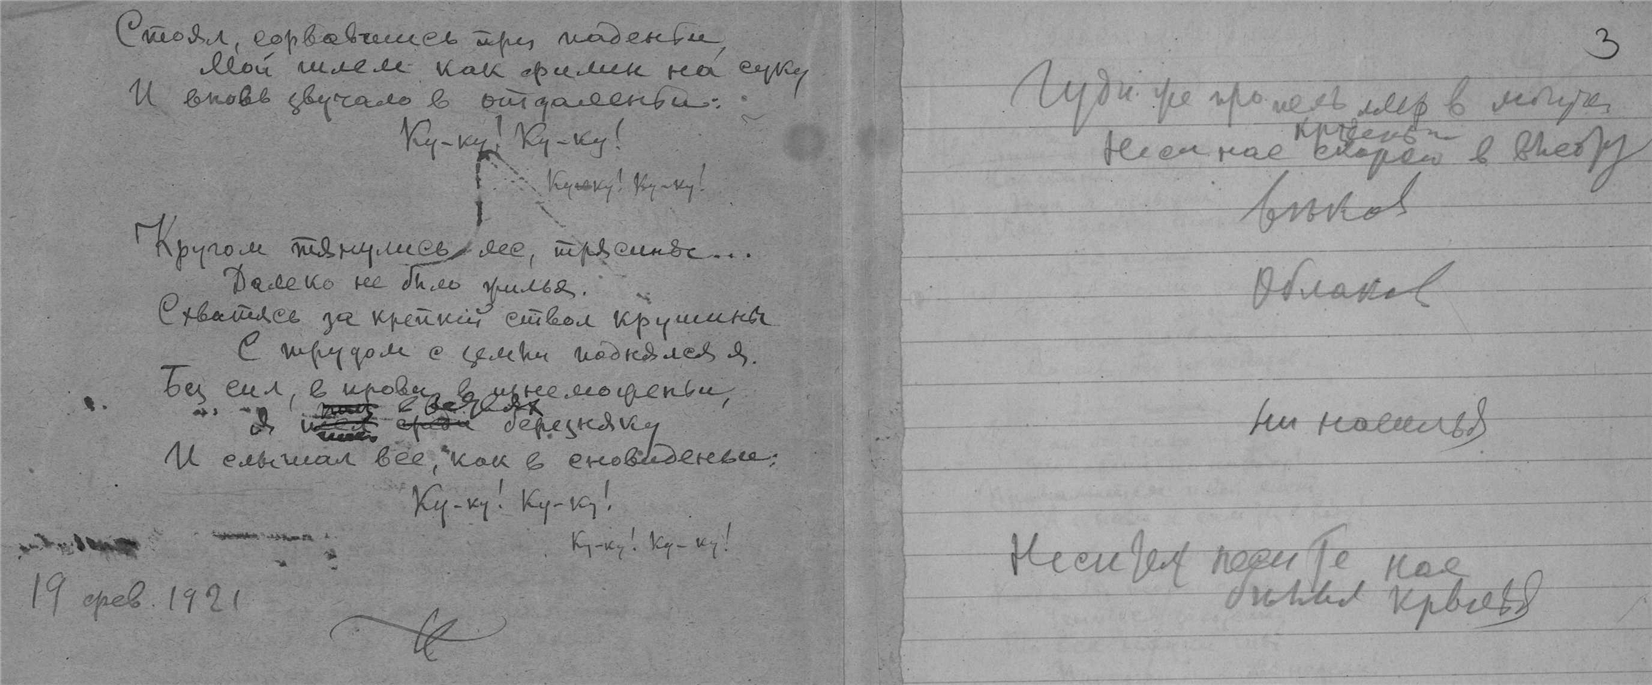 Стоял, сорвавшись при паденьи,
Мой шлем как филин на суку
И вновь звучало в отдаленьи:
Ку-ку! Ку-ку!
Ку-ку! Ку-ку!
Кругом тянулись лес, трясины...
Далеко не было жилья.
Схватясь за крепкий ствол крушины
С трудом с земли поднялся я.
Без сил, в крови, в изнеможеньи,
я березняку
И слышал все, как в сновиденьи:
Ку-ку! Ку-ку!
Ку-ку! Ку-ку!
19 фев. 1921
3
Гуди же пропеллер в
Неси нас скорей в
вѣков
облаков
ни насилья
Несите нас
крылья